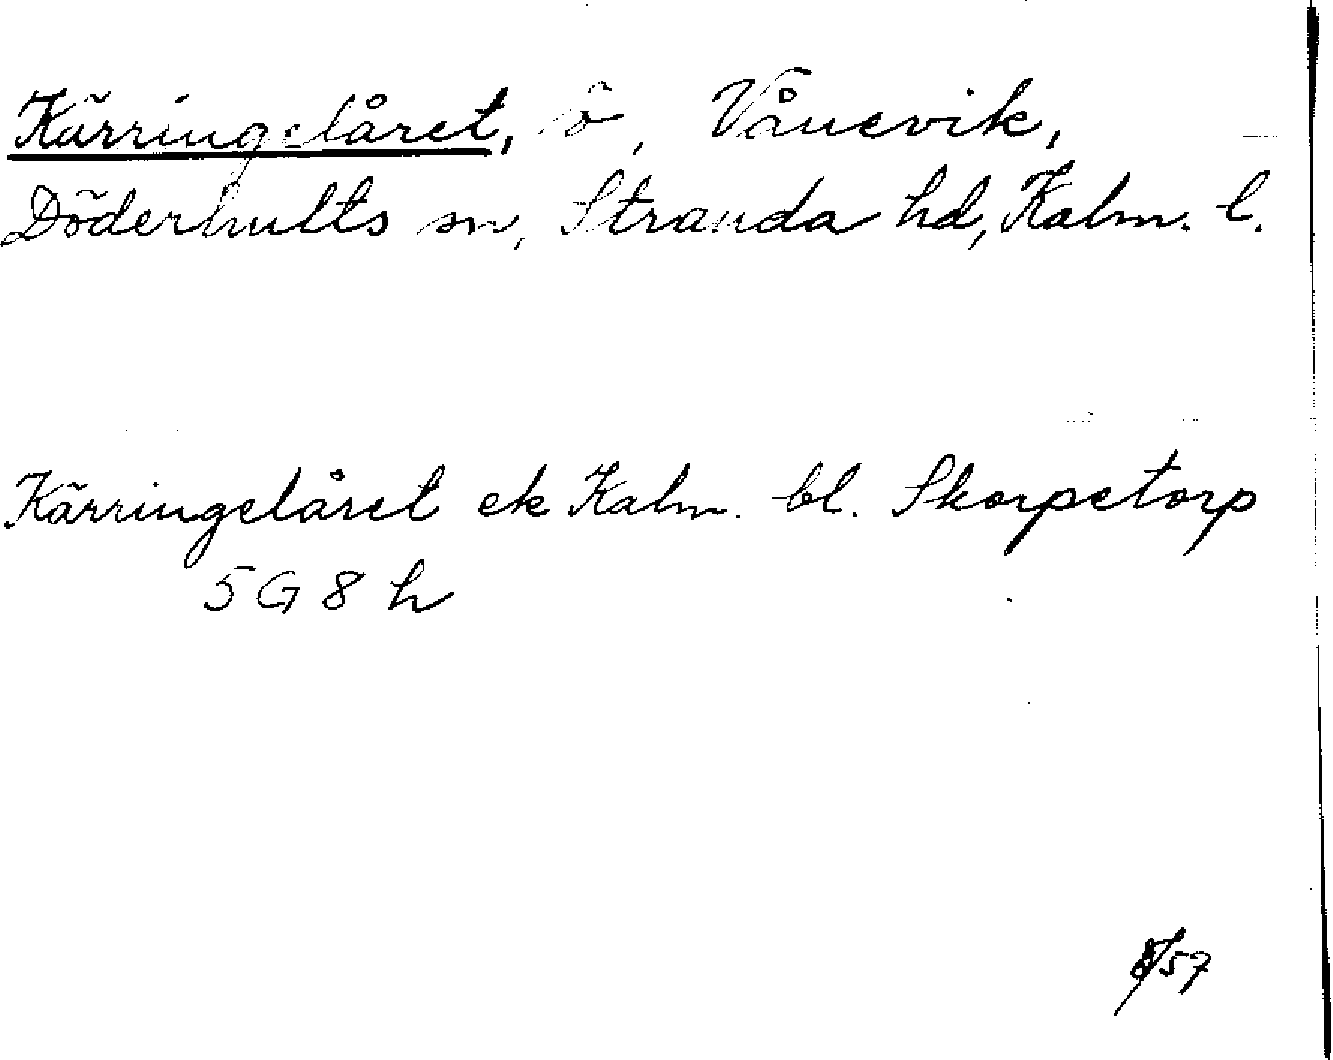 Käringelåret, ö, Vånevik,
Döderhults sn, Stranda hd, Kalm. l.
Käringelåret ek Kalm. bl. Skorpetorp
5 G 8 h
/57